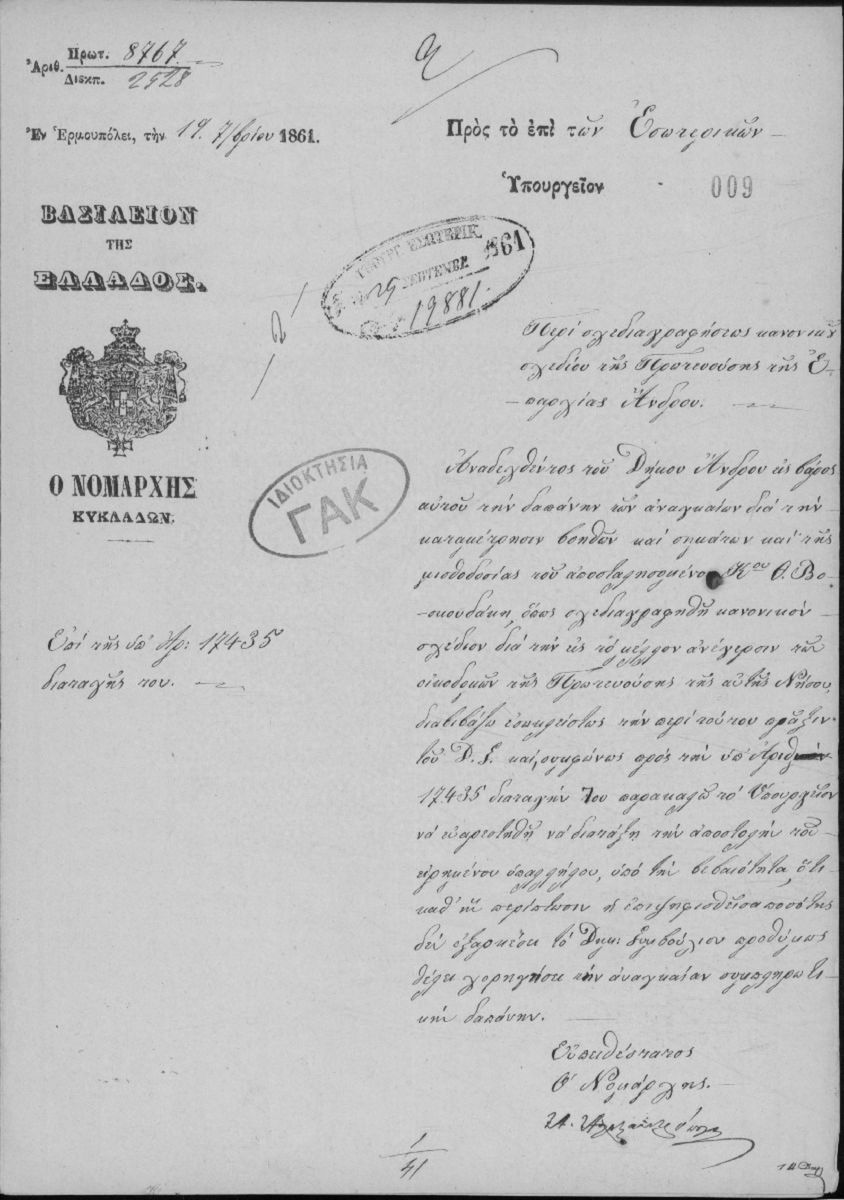 Ἀριθ. Πρωτ. 8767
Διεκπ. 2528
Ἐν Ἑρμουπόλει, τὴν 19. 7/βρίου 1861.
ΒΑΣΙΛΕΙΟΝ
ΤΗΣ
ΕΛΛΑΔΟΣ.
Ο ΝΟΜΑΡΧΗΣ
ΚΥΚΛΑΔΩΝ.
Ἐπὶ τῆς ὑπ' ἀρ: 17435
διαταγῆς του.
Πρὸς τὸ ἐπὶ τῶν Ἐσωτερικῶν
Ὑπουργεῖον
009
ΥΠΟΥΡΓ. ΕΣΩΤΕΡΙΚ.
29 ΣΕΠΤΕΜΒ 1861
19881.
ΙΔΙΟΚΤΗΣΙΑ
ΓΑΚ
Περὶ σχεδιαγραφήσεως κανονικοῦ
σχεδίου τῆς Πρωτευούσης τῆς Ἐ-
παρχίας Ἄνδρου.
Ἀναδεχθέντος τοῦ Δήμου Ἄνδρου εἰς βάρος
αὐτοῦ τὴν δαπάνην τῶν ἀναγκαίων διὰ τὴν
καταμέτρησιν βοηθῶν καὶ σημάτων καὶ τῆς
μισθοδοσίας τοῦ ἀποσταλησομένου Κου Θ. Βο-
σκουδάκη, ὅπως σχεδιαγραφηθῇ κανονικὸν
σχέδιον διὰ τὴν εἰς τὸ μέλλον ἀνέγερσιν τῶν
οἰκοδομῶν τῆς Πρωτευούσης τῆς αὐτῆς Νήσου,
διαβιβάζω ἐσωκλείστως τὴν περὶ τούτου πρᾶξιν
τοῦ Δ. Σ. καί, συμφώνως πρὸς τὴν ὑπ' Ἀριθ
17435 διαταγήν του παρακαλῶ τὸ Ὑπουργεῖον
νὰ εὐαρεστηθῇ νὰ διατάξῃ τὴν ἀποστολὴν τοῦ
εἰρημένου ὑπαλλήλου, ὑπὸ τὴν βεβαιότητα, ὅτι
καθ' ἣν περίπτωσιν ἡ ἐπιψηφισθεῖσα ποσότης
δὲν ἐξαρκέσει τὸ Δημ: Συμβούλιον προθύμως
θέλει χορηγήσει τὴν ἀναγκαίαν συμπληρωτι-
κὴν δαπάνην.
Εὐπειθέστατος
Ὁ Νομάρχης.
1
41